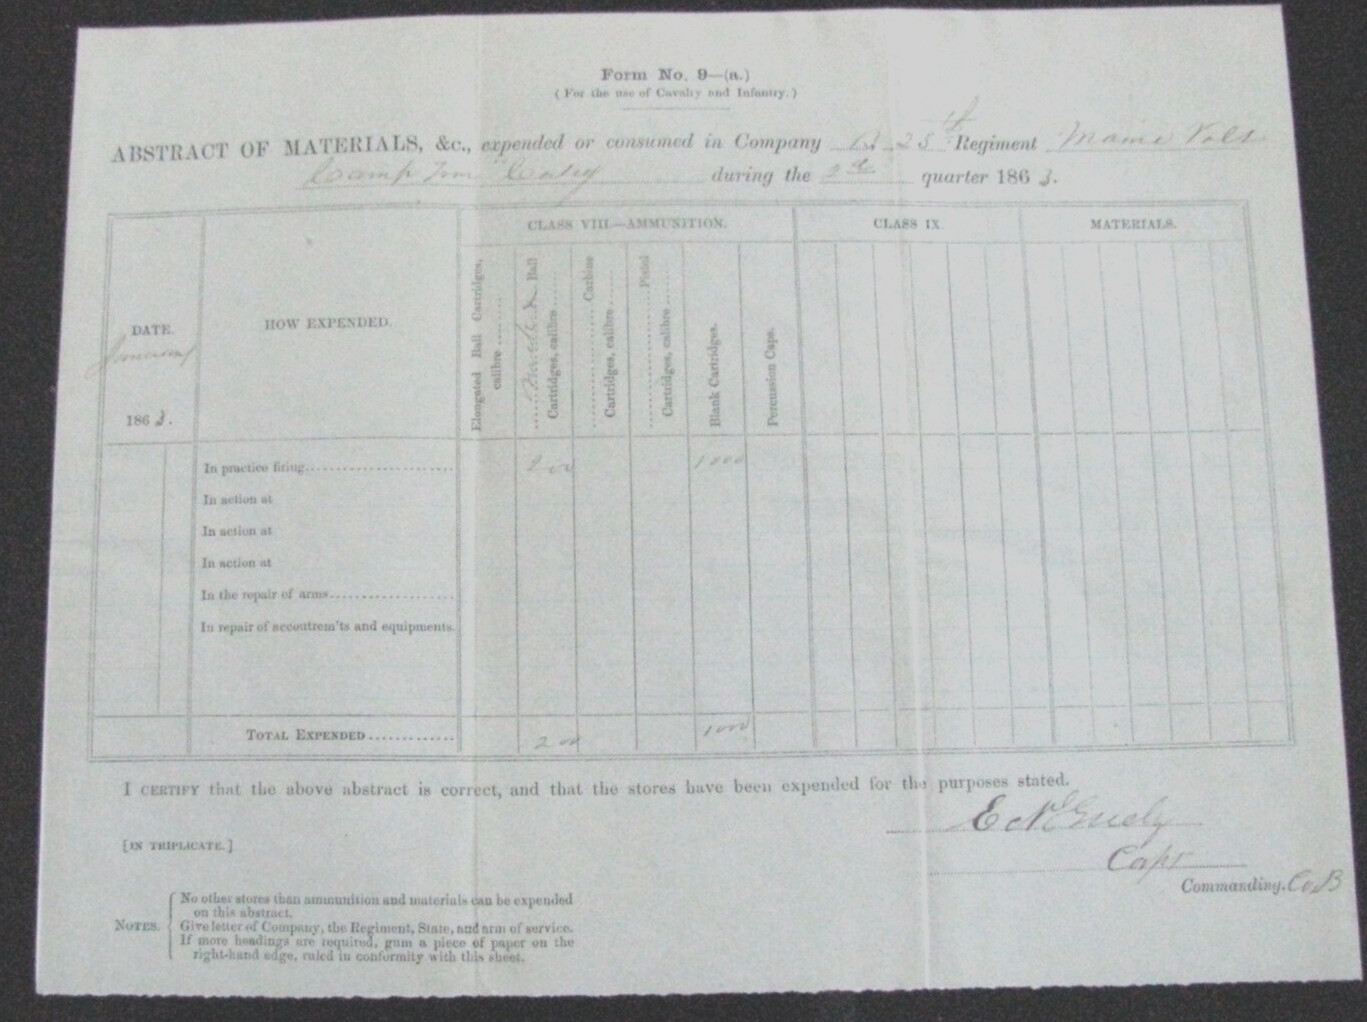 Form No. 9—(a.)
( For the use of Cavalry and Infantry. )
ABSTRACT OF MATERIALS, &c., expended or consumed in Company B 25th Regiment Maine Vols
Camp during the 2d quarter 1863.
DATE.
January
1863.
HOW EXPENDED.
CLASS VIII.—AMMUNITION.
Elongated Ball Cartridges, calibre
Ball Cartridges, calibre
Carbine Cartridges, calibre
Pistol Cartridges, calibre
Blank Cartridges.
Percussion Caps.
CLASS IX.
MATERIALS.
In practice firing 200 1000
In action at
In action at
In action at
In the repair of arms
In repair of accoutrem'ts and equipments.
TOTAL EXPENDED 200 1000
I CERTIFY that the above abstract is correct, and that the stores have been expended for the purposes stated.
[IN TRIPLICATE.]
Capt
Commanding. Co B
NOTES. No other stores than ammunition and materials can be expended
on this abstract.
Give letter of Company, the Regiment, State, and arm of service.
If more headings are required, gum a piece of paper on the
right-hand edge, ruled in conformity with this sheet.